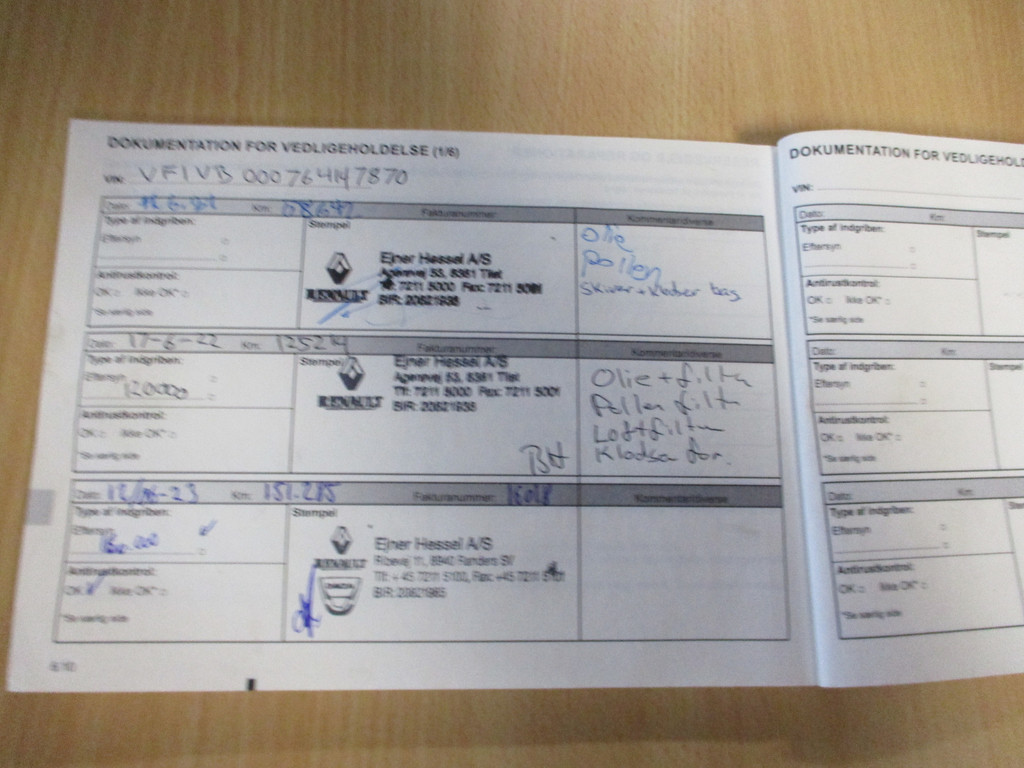 DOKUMENTATION FOR VEDLIGEHOLDELSE (1/6)
VIN: VF1VB000764147870
Dato: Km: Fakturanummer: Kommentar/diverse
Type af indgriben:
Eftersyn
Antirustkontrol:
OK □ Ikke OK* □
*Se særlig side
Stempel
RENAULT
Ejner Hessel A/S
Agerøvej 53, 8381 Tilst
Tlf: 7211 5000 Fax: 7211 5001
Olie
Pollen
Skiver + klodser bag
Dato: 17-6-22 Km: 125214 Fakturanummer: Kommentar/diverse
Type af indgriben:
Eftersyn
120000
Antirustkontrol:
OK □ Ikke OK* □
*Se særlig side
Stempel
RENAULT
Ejner Hessel A/S
Agerøvej 53, 8381 Tilst
Tlf: 7211 5000 Fax: 7211 5001
BH
Olie + filter
Pollen filter
Luftfilter
Klodser for.
Dato: 12/06-23 Km: 151.285 Fakturanummer: Kommentar/diverse
Type af indgriben:
Eftersyn
Antirustkontrol:
OK Ikke OK* □
*Se særlig side
Stempel
RENAULT
DACIA
Ejner Hessel A/S
Ribevej 11, 8940 Randers SV
Tlf: +45 7211 5100, Fax: +45 7211 5101
DOKUMENTATION FOR VEDLIGEHOLD
VIN:
Dato: Km:
Type af indgriben:
Eftersyn
Antirustkontrol:
OK □ Ikke OK* □
*Se særlig side
Stempel
Dato: Km:
Type af indgriben:
Eftersyn
Antirustkontrol:
OK □ Ikke OK* □
*Se særlig side
Stempel
Dato: Km:
Type af indgriben:
Eftersyn
Antirustkontrol:
OK □ Ikke OK* □
*Se særlig side